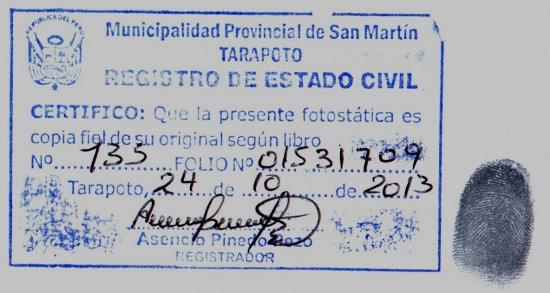 REPUBLICA DEL PERU
Municipalidad Provincial de San Martín
TARAPOTO
REGISTRO DE ESTADO CIVIL
CERTIFICO: Que la presente fotostática es
copia fiel de su original según libro
Nº.....735.....FOLIO Nº 01531709
Tarapoto, 24 de 10 de 2013
Asencio Pinedo Pezo
REGISTRADOR